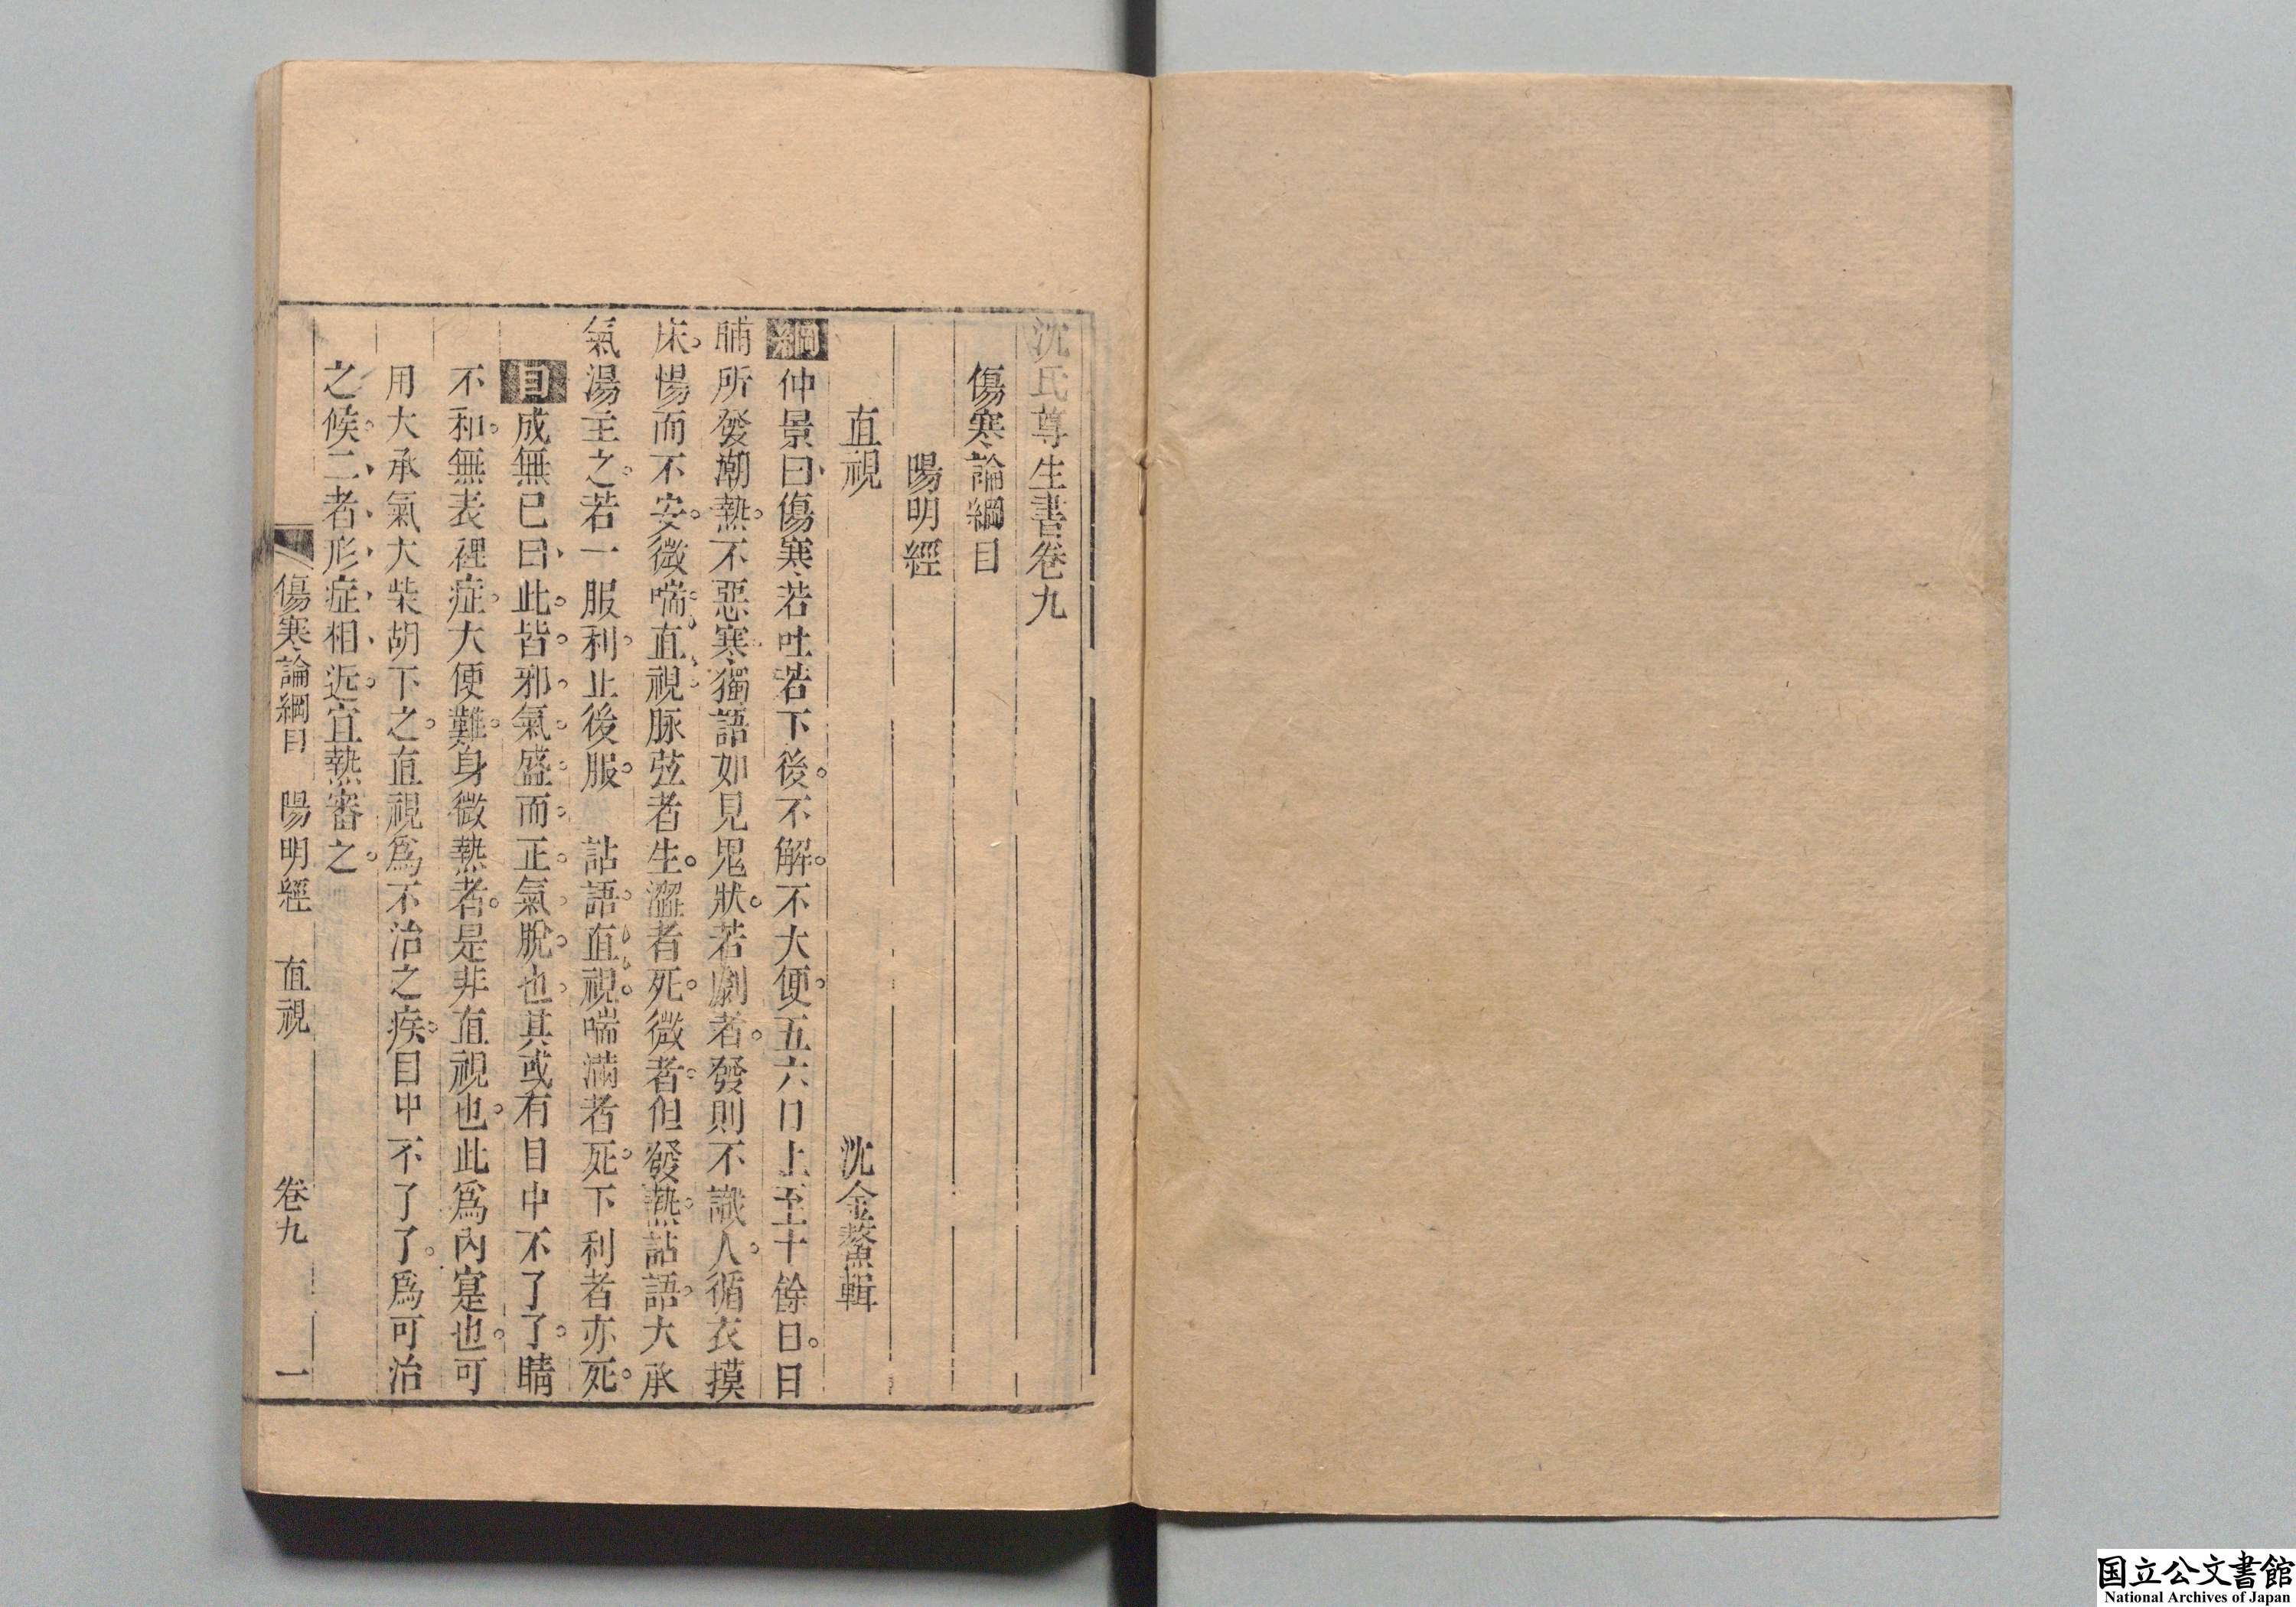 沈氏尊生書卷九
傷寒論綱目
陽明經
沈金鰲輯
直視
綱仲景曰傷寒若吐若下後不解不大便五六日上至十餘日日
晡所發潮熱不惡寒獨語如見鬼狀若劇者發則不識人循衣摸
床惕而不安微喘直視脉弦者生澀者死微者但發熱詀語大承
氣湯主之若一服利止後服　詀語直視喘滿者死下利者亦死
目成無已曰此皆邪氣盛而正氣脫也其或有目中不了了睛
不和無表裡症大便難身微熱者是非直視也此爲內寔也可
用大承氣大柴胡下之直視爲不治之疾目中不了了爲可治
之候二者形症相近宜熱審之
傷寒論綱目　陽明經　直視　卷九　一
国立公文書館
National Archives of Japan